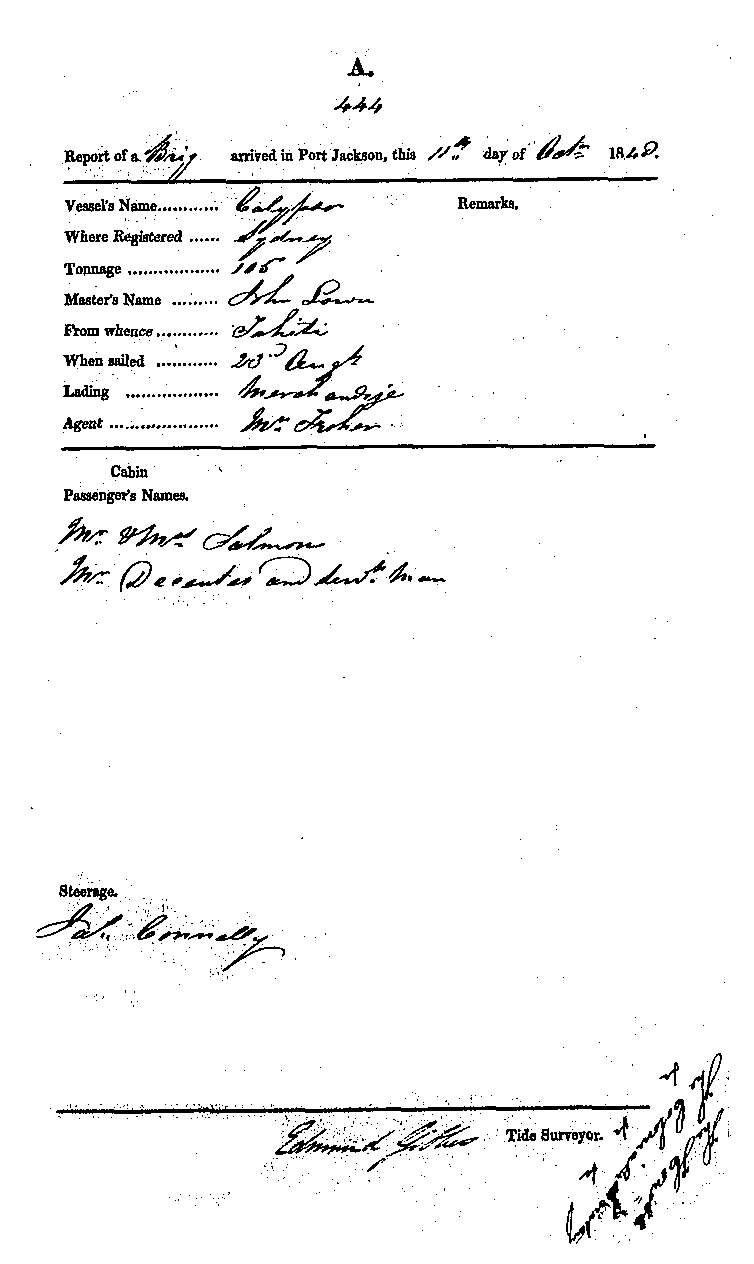 A.
444
Report of a Brig arrived in Port Jackson, this 11th day of Octr 1848.
Vessel's Name............ Calypso Remarks.
Where Registered ...... Sydney
Tonnage .................. 105
Master's Name ......... John
From whence............ Tahiti
When sailed ............ 23rd Augt
Lading .................. Merchandize
Agent ..................... Mr
Cabin
Passenger's Names.
Mr & Mrs Salmon
Mr and servt. Man
Steerage.
Jas. Connolly
Edmund Gibbes Tide Surveyor.